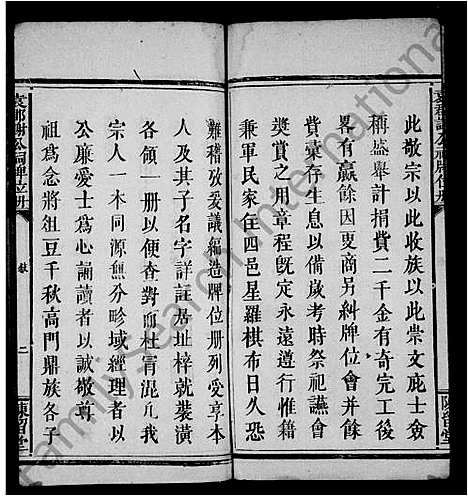 袁郡謝公祠牌位册
此敬宗以此收族以此崇文庇士僉
稱盛舉計捐費二千金有奇完工後
畧有贏餘因更商另糾牌位會將會
貲橐存生息以備歲考時祭祀讌會
奬賞之用章程既定永遠遵行惟籍
兼軍民家住四邑星羅棋布日久恐
陳留堂
難稽攷爰議編造牌位册列受享本
及其子名字詳註居址梓就裝潢
各領一册以便查對而杜冒混凡我
宗人一本同源無分畛域經理者以
公廉愛士爲心誦讀者以誠敬尊
祖爲念將俎豆千秋高門鼎族各子
袁郡謝公祠牌位册
二
陳留堂
FamilySearch International